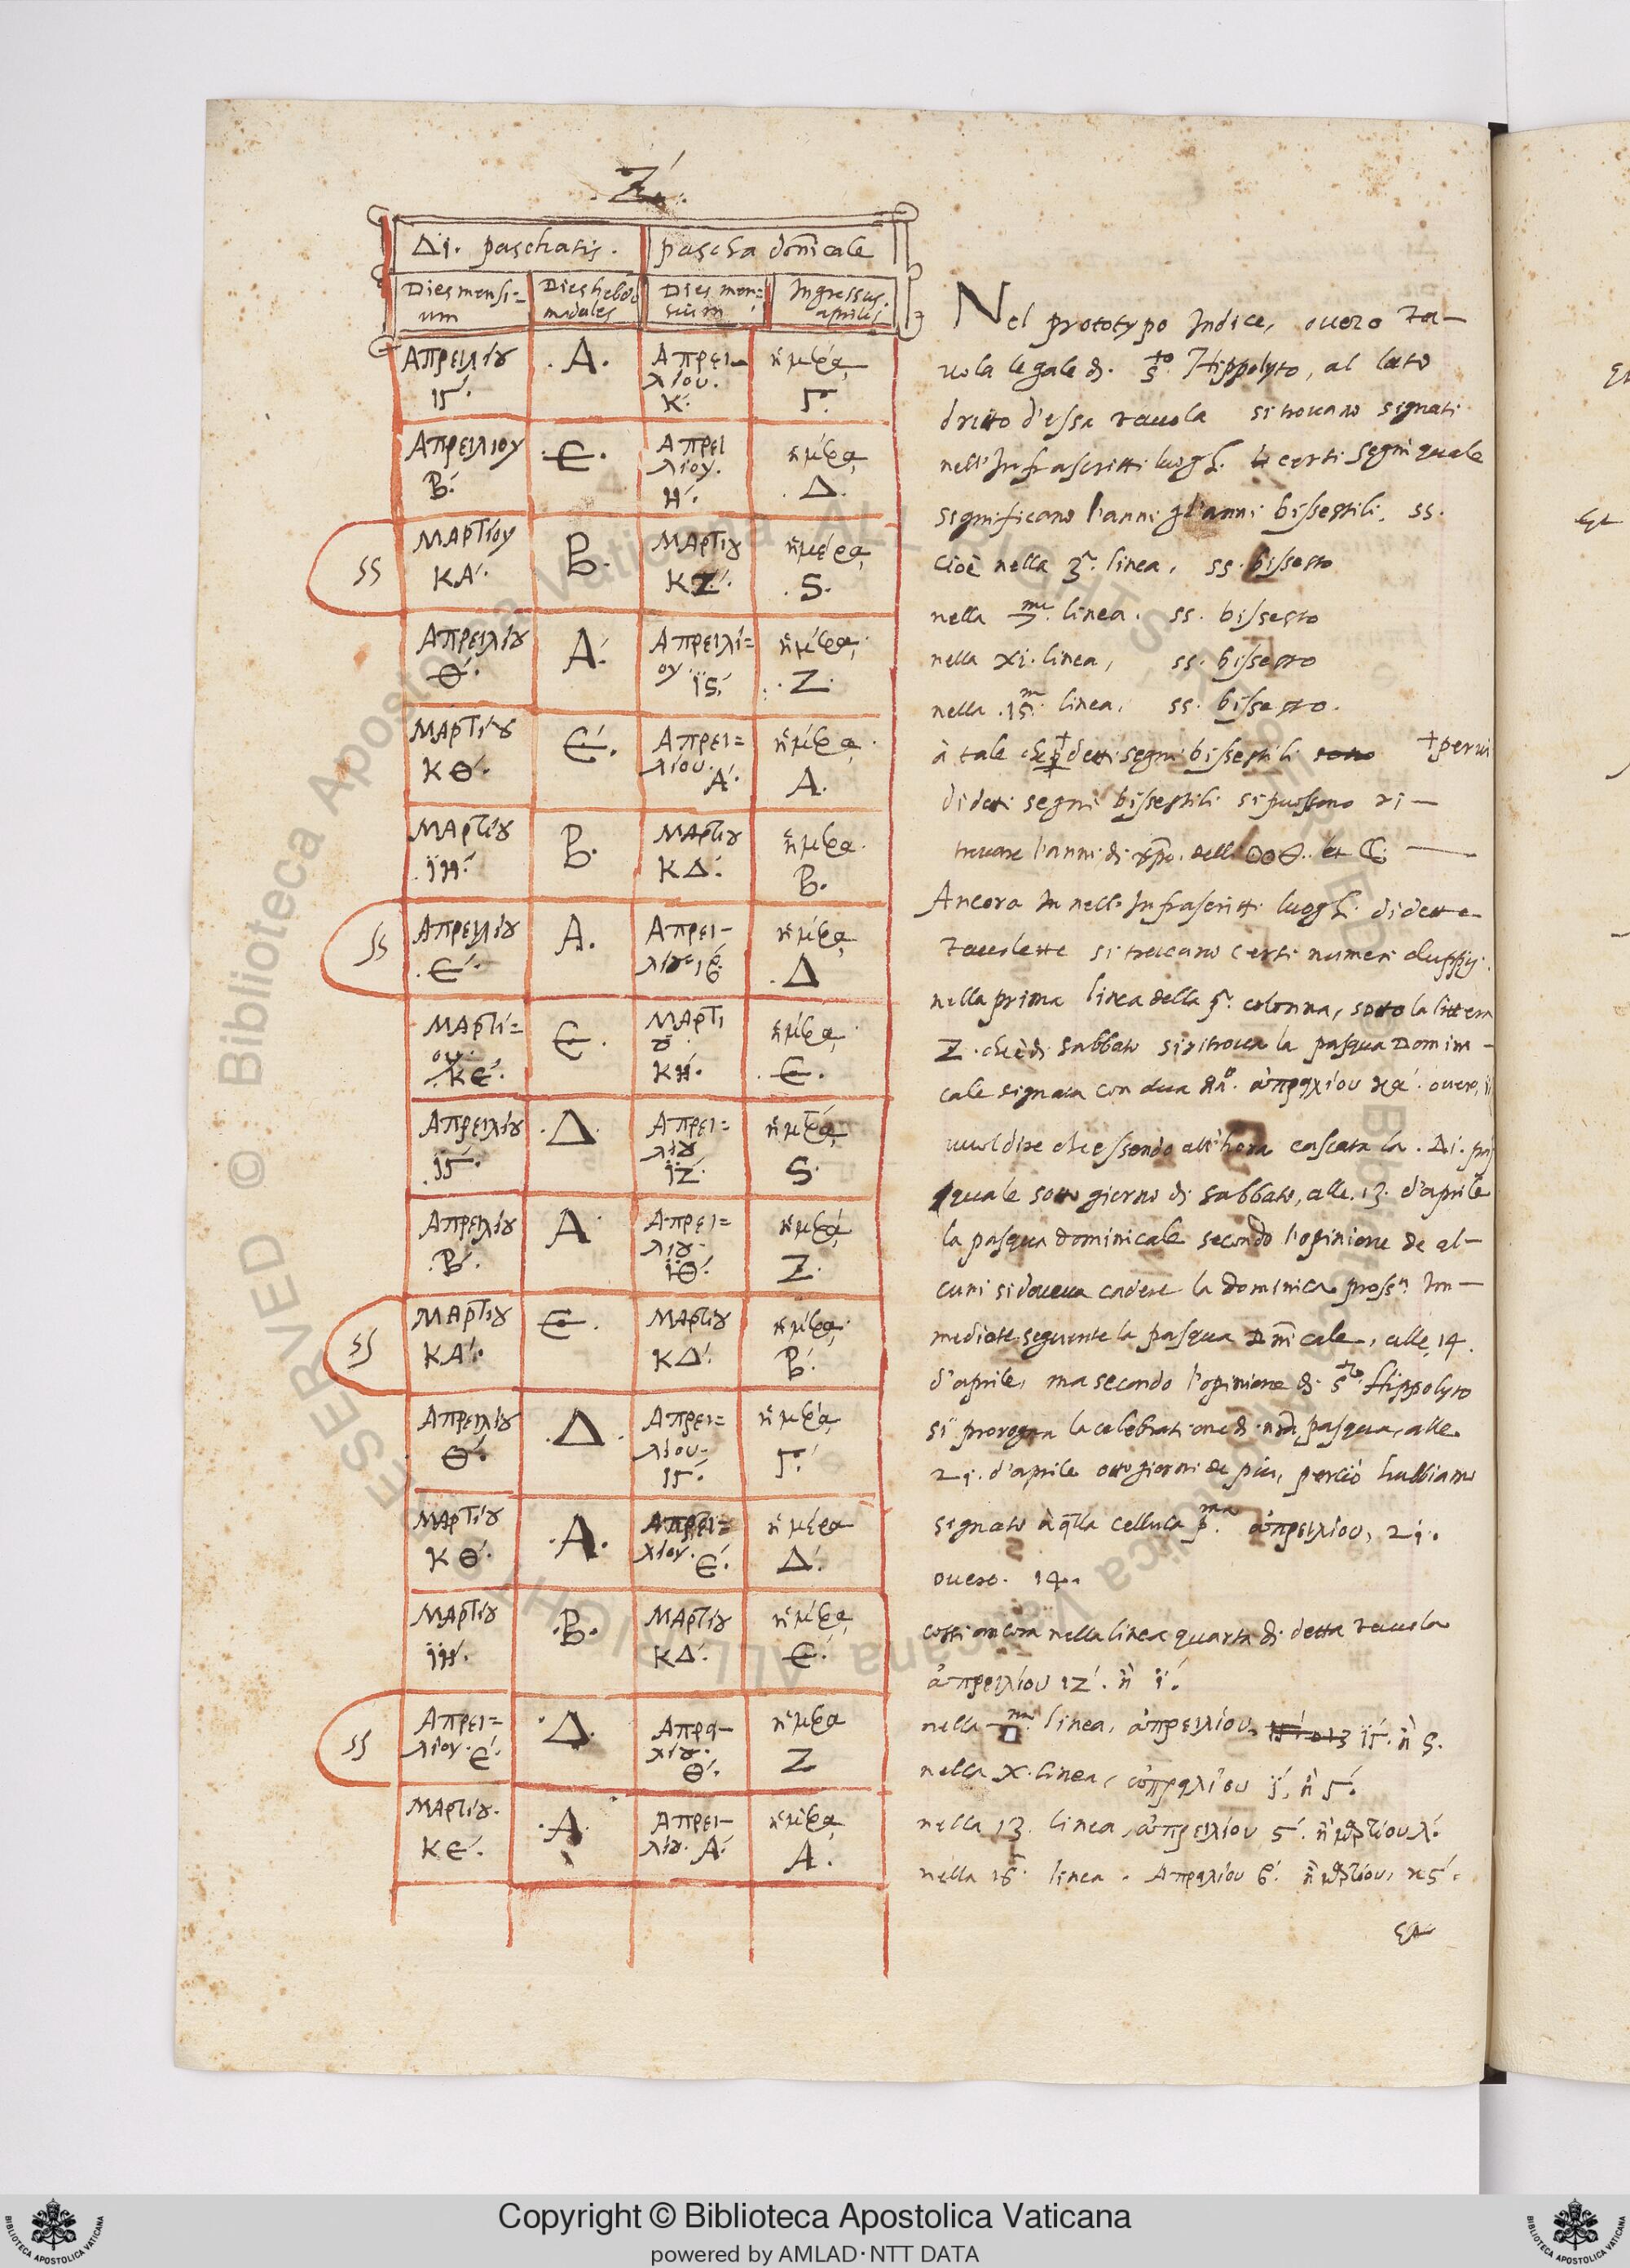 .Z.́
Δi. paschatis. | pascha dom̄icale
Dies mensi=
um | Dies hebdo
madales | Dies men=
sium | Ingressus
aprilis
Απρειλίȣ
ιγ́. | .Α. | Απρει-
λίου.
Κ. | ἡμέρᾳ
ϛ.
Απρειλιου
Β.́ | .Є. | Απρει
λίου.
Η.́ | ἡμέρᾳ
.Δ.
ss
Μαρτίου
ΚΑ.́ | Β. | Μαρτιȣ
ΚΖ.́ | ἡμέρᾳ
.S.
Απρειλίȣ
Θ.́ | Α.́ | Απρειλί=
ου.
ϊς.́ | ἡμέρᾳ
.Ζ.
Μαρτίȣ
ΚΘ.́ | Є.́ | Απρει=
λίου.
Α.́ | ἡμέρᾳ.
Α.
Μαρτίȣ
.ϊΗ.́ | Β. | Μαρτιȣ
ΚΔ.́ | ἡμέρᾳ.
Β.
ss
Απρειλίȣ
.Є.́ | Α. | Απρει-
λίȣ ιβ́. | ἡμέρᾳ
.Δ
Μαρτί=
ου.
ΚЄ.́ | Є. | Μαρτι
ȣ.
ΚΗ.́ | ἡμέρᾳ
.Є.
Απρειλίȣ
.ϊγ́. | .Δ. | Απρει=
λίȣ
ϊΖ.́ | ἡμέρᾳ
S.
Απρειλίȣ
.Β.́ | Α. | Απρει=
λιȣ
ϊΘ.́ | ἡμέρᾳ
Ζ.
ss
Μαρτιȣ
ΚΑ.́ | Є. | Μαρτιȣ
ΚΔ.́ | ἡμέρᾳ
Β.́
Απρειλίȣ
Θ.́ | .Δ. | Απρει=
λίου.
ιγ́. | ἡμέρᾳ
γ.́
Μαρτίȣ
ΚΘ.́ | .Α. | Απρει=
λίου.
Є.́ | ἡμέρα
Δ.́
Μαρτίȣ
ϊΗ.́ | .Β. | Μαρτίȣ
ΚΔ.́ | ἡμέρᾳ
Є.́
ss
Απρει=
λίου. Є.́ | .Δ. | Απρει-
λίȣ.
Θ.́ | ἡμέρα
Ζ
Μαρτίȣ.
ΚЄ.́ | .Α. | Απρει-
λίȣ. Α.́ | ἡμέρᾳ
Α.
Nel prototypo Indice, ouero ta-
uola legale di. s.to Hippolyto, al lato
dritto d'essa tauola si trouano signati
nell'Infrascritti luoghi. certi segni quale
significano l'anni gl'anni bissestili. ss.
cioè nella 3.a linea, ss. bissesto
nella 7.ma linea. ss. bissesto
nella xi. linea, ss. bissesto
nella .15.ma linea, ss. bissesto.
à tale che detti segni bissestili sono
di detti segni bissestili si possono ri-
trouare l'anni di xp̄o. dell
Ancora In nell'Infrascritti luoghi di dette
tauolette si trouano certi numeri duppij.
nella prima linea della colonna, sotto la littera
Z. che è di sabbato si ritroua la pasqua Domini-
cale signata con dua ἀπρηλίου κα. ouero,
uuol dire che essendo all'hora cascata la .Δi. pas
quale sotto giorno di sabbato, alle. 13. d'aprile
la pasqua dominicale secondo l'opinione de al-
cuni si doueua cadere la dominica prossa. Im-
mediate seguente la pasqua Dm̄icale, alle 14.
d'aprile, ma secondo l'opinione di s.to Hippolyto
si proroga la celebratione di nr̄a pasqua, alle
21. d'aprile otto giorni de piu, perciò habbiamo
signato à q̄lla cellula p.ma ἀπρειλίου, 21.
ouero. 14.
cossi ancora nella linea quarta di detta tauola
ἀπρειλίου ιζ́. ἢ ϊ.́
nella linea, ἀπρειλίου, ιγ́. ἢ ς.
nella x. linea, ἀπρηλίου ϊ,́ ἢ γ.́
nella 13. linea, ἀπρειλίου ς́. ἢ μαρτίου λ.́
nella 16. linea. Απρηλίου β́. ἢ μαρτίου, κς́.